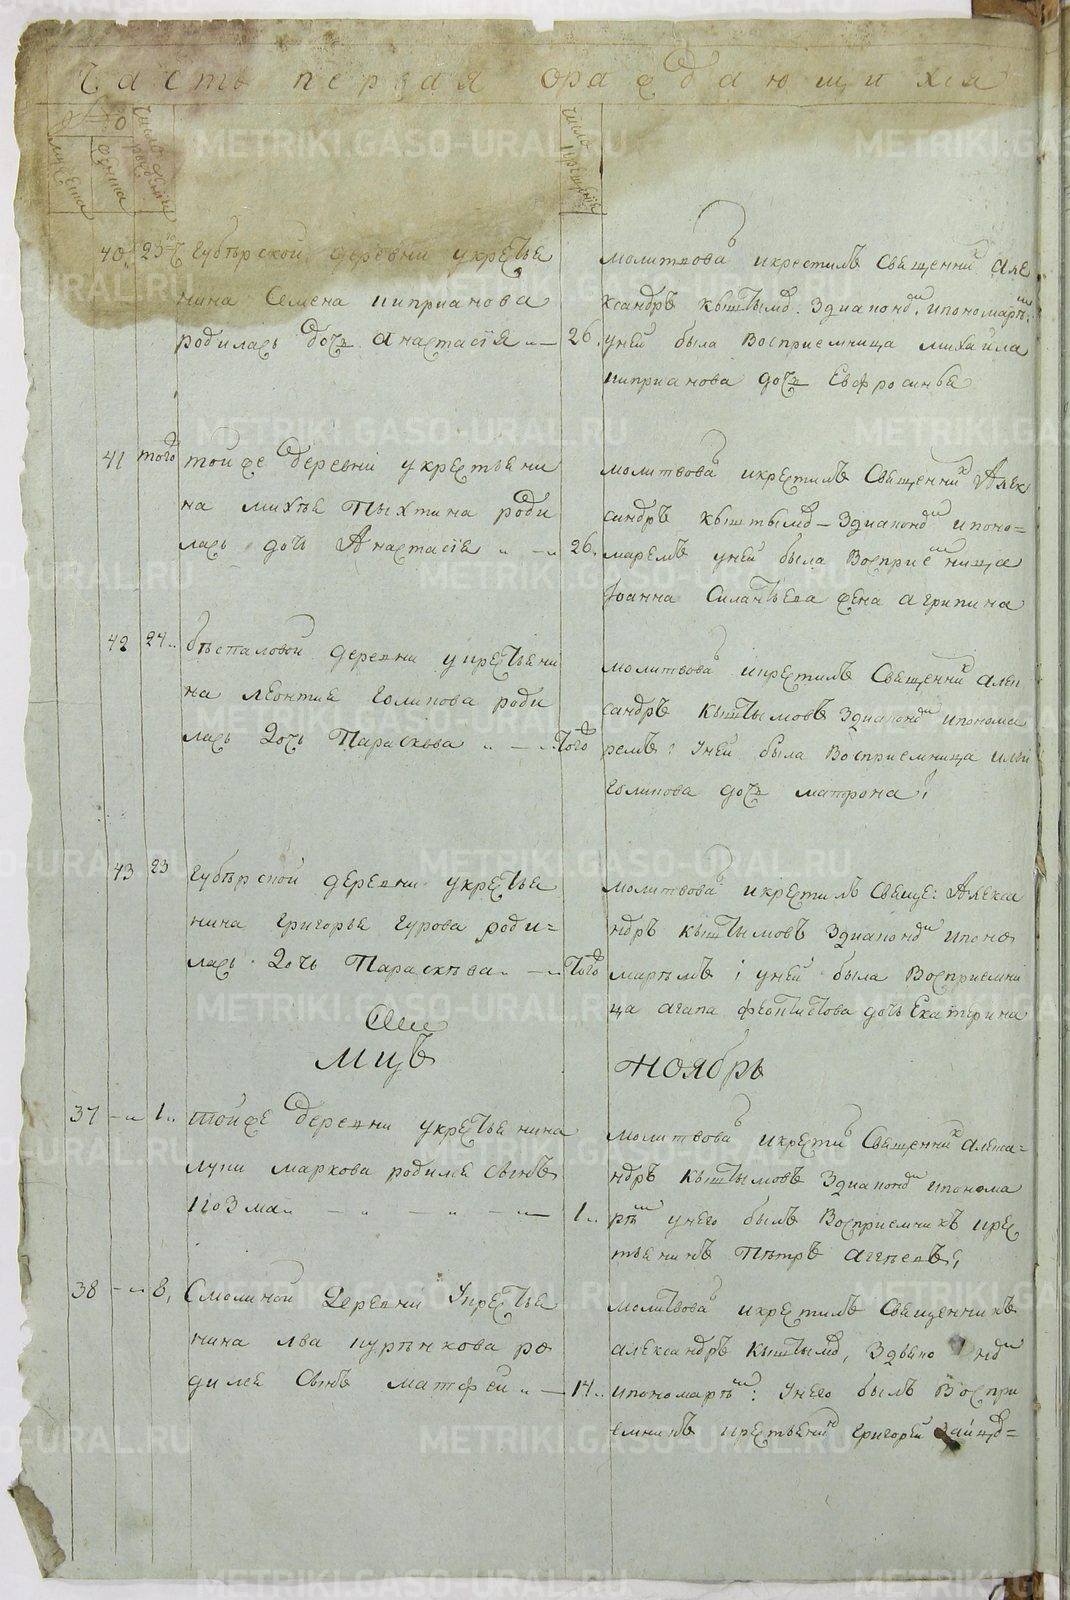 Часть первая ораждающихся
число рождениі
число крещениі
мужеска
женска
40. 23 Губѣрской деревни укрестья
нина Семена киприанова
родилась дочь Анастасія 26.
молитвова икрестилъ Священник Але
ксандръ кыштымо. Здиаконом. ипономарем.
уней была Восприемница михаила
киприанова дочь Евфросинья
41 того тойже деревни укрестьени
на михѣя Пыхтина роди
лась дочь Анастасія 26.
молитвова икрестилъ Священник Алек
сандръ кыштымо Здиаконом ипоно=
маремъ уней была Восприемница
Іоанна Силантьева жена агрипина
42 24 деревни укрестьени
на леонтия Голикова роди
лась Дочь Параскьва того
молитвова икрестилъ Священник алек
сандръ Кыштымовъ Здиаконом ипонома
ремъ: Уней была Восприемница ильи
Голикова дочь матрона;
43 23 Губѣрской деревни укрестья
нина григорья гурова роди=
лась Дочь Параскѣва того
молитвова икрестилъ свяще: Алекса
ндръ кыштымовъ Здиаконом ипоно
марѣмъ; уней была Восприемни
ца агапа феоктистова дочь Екатѣрина
Мцъ ноябрь
37 1 тойже деревни укрестьянина
луки маркова родился сынъ
козма 1
молитвова икрести Священник алекса=
ндръ Кыштымовъ Здиаконом ипонома
рѣм унего былъ Восприемникъ крес
тьянинъ Пѣтръ агѣевъ;
38 8, Смолиной Деревни Укрестья
нина лва курѣнкова ро
дился Сынъ матфей 14
молитвова икрестилъ Священникъ
александръ Кыштымо, Здьяконом
ипономарѣм: Унего былъ Воспри
емникъ крестьенин григорей зайцо=